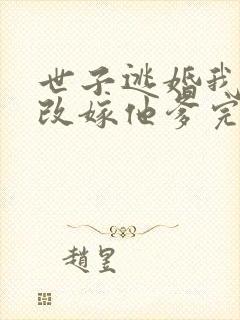 世子逃婚我
改嫁他爹完
趙昱